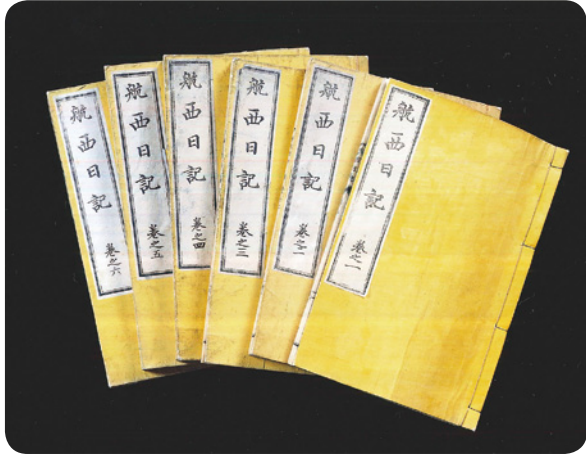 航西日記 卷之一
航西日記 卷之二
航西日記 卷之三
航西日記 卷之四
航西日記 卷之五
航西日記 卷之六